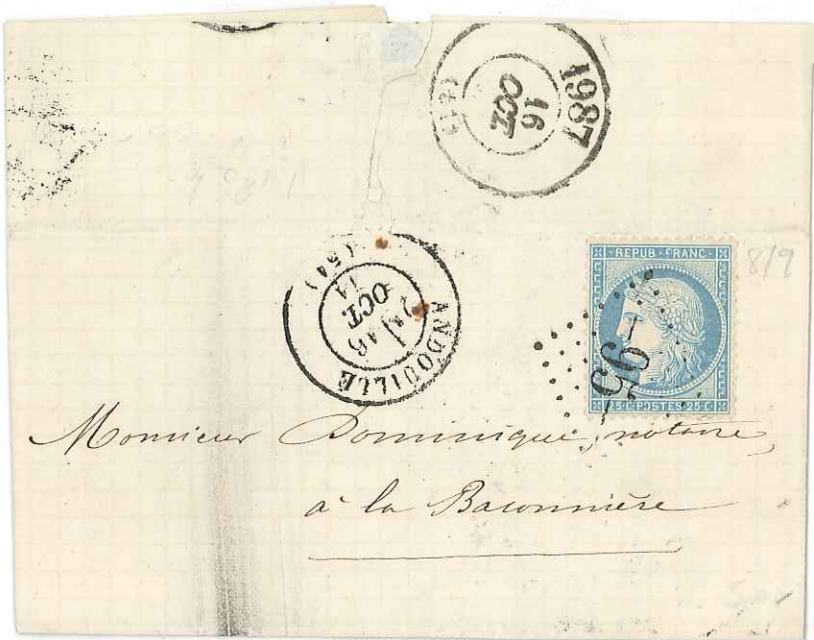 1987
16
OCT.
ANDOUILLÉ
16
OCT.
71
(54)
8/9
REPUB · FRANC ·
95
25 C POSTES 25 C
Monsieur Dominique, notaire,
à la Baconnière